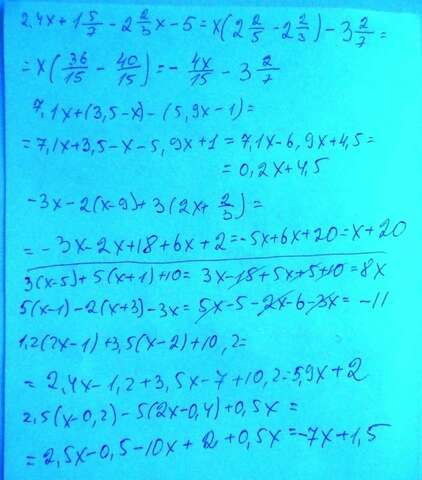 2,4x+1 5/7-2 2/3x-5=x(2 2/5-2 2/3)-3 2/7=
=x(36/15-40/15)=-4x/15-3 2/7
7,1x+(3,5-x)-(5,9x-1)=
=7,1x+3,5-x-5,9x+1=7,1x-6,9x+4,5=
=0,2x+4,5
-3x-2(x-9)+3(2x+2/3)=
=-3x-2x+18+6x+2=-5x+6x+20=x+20
3(x-5)+5(x+1)+10=3x-15+5x+5+10=8x
5(x-1)-2(x+3)-3x=5x-5-2x-6-3x=-11
1,2(2x-1)+3,5(x-2)+10,2=
=2,4x-1,2+3,5x-7+10,2=5,9x+2
2,5(x-0,2)-5(2x-0,4)+0,5x=
=2,5x-0,5-10x+2+0,5x=-7x+1,5